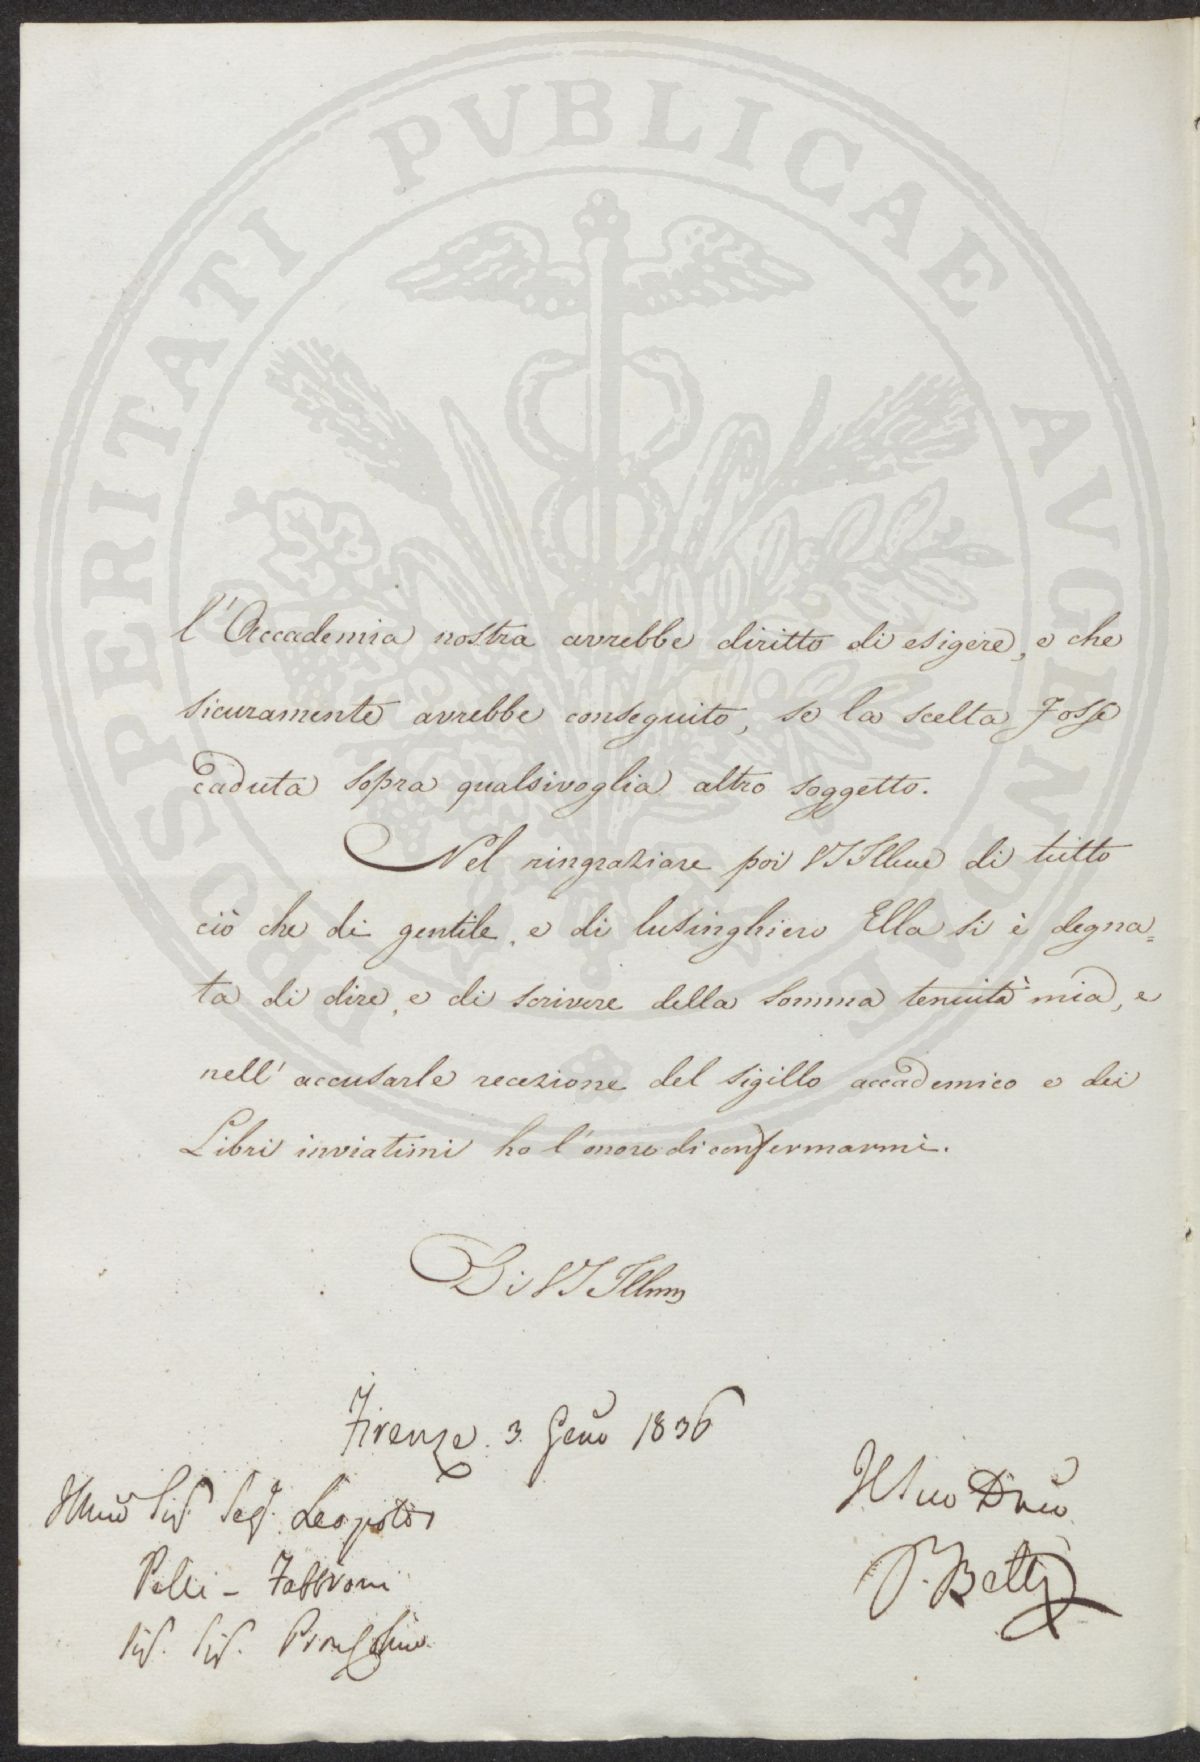 PROSPERITATI PVBLICAE AVGENDAE
l'Accademia nostra avrebbe diritto di esigere, e che
sicuramente avrebbe conseguito, se la scelta fosse
caduta sopra qualsivoglia altro soggetto.
Nel ringraziare poi VS Illme di tutto
ciò che di gentile, e di lusinghiero Ella si è degna=
ta di dire, e di scrivere della somma tenuità mia, e
nell' accusarle recezione del sigillo accademico e dei
Libri inviatimi ho l'onore di confermarmi.
Di VS Illma
Firenze 3. Genō 1836
Illmo Sig. Seg. Leopoldo
Pelli - Fabbroni
Sig. Sig. Pron Colmo
Il Suo Devō
P. Betti